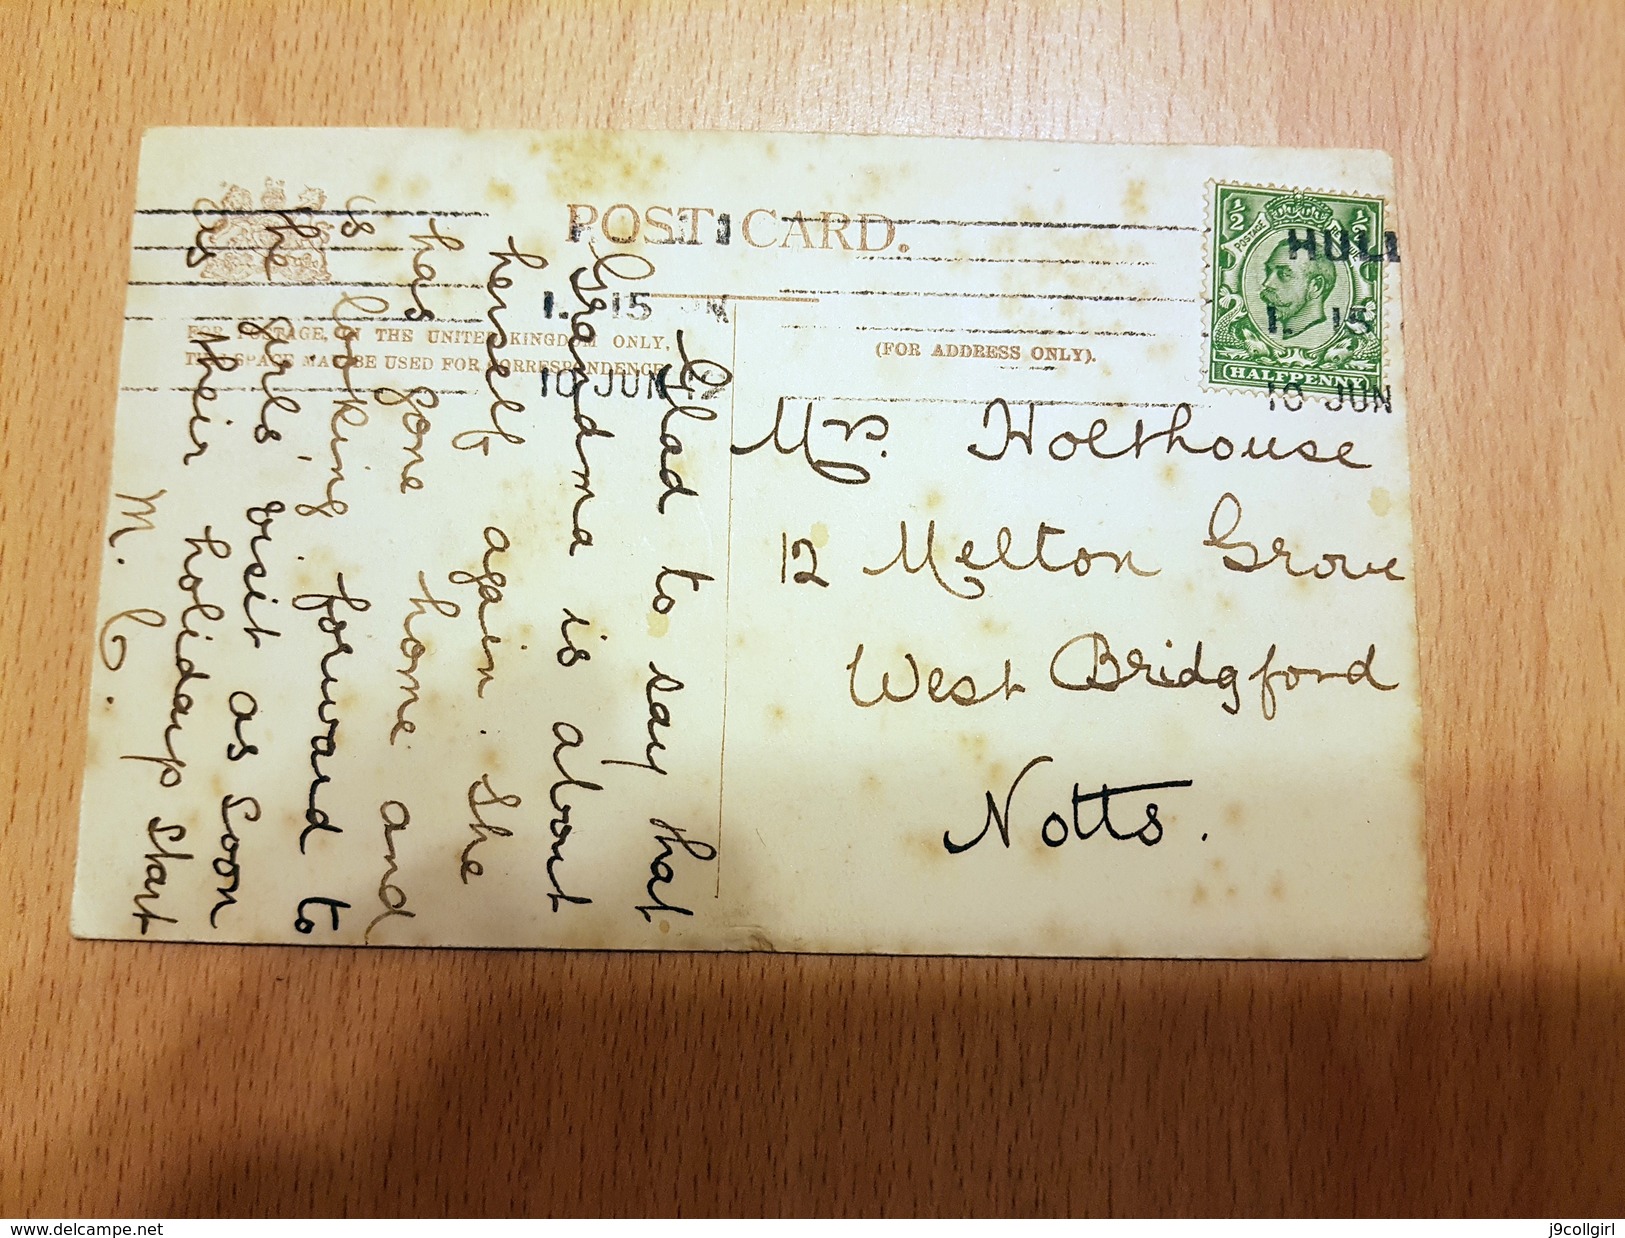 POST CARD.
FOR POSTAGE IN THE UNITED KINGDOM ONLY,
THIS SPACE MAY BE USED FOR CORRESPONDENCE.
(FOR ADDRESS ONLY).
1. 15
10 JUN
HULL
1. 15
10 JUN
½ ½
POSTAGE REVENUE
HALFPENNY
Glad to say that
Grandma is about
herself again. She
has gone home and
is looking forward to
the girls' visit as soon
as their holidays start
M. C.
Mrs. Holthouse
12 Melton Grove
West Bridgford
Notts.
www.delcampe.net
j9collgirl